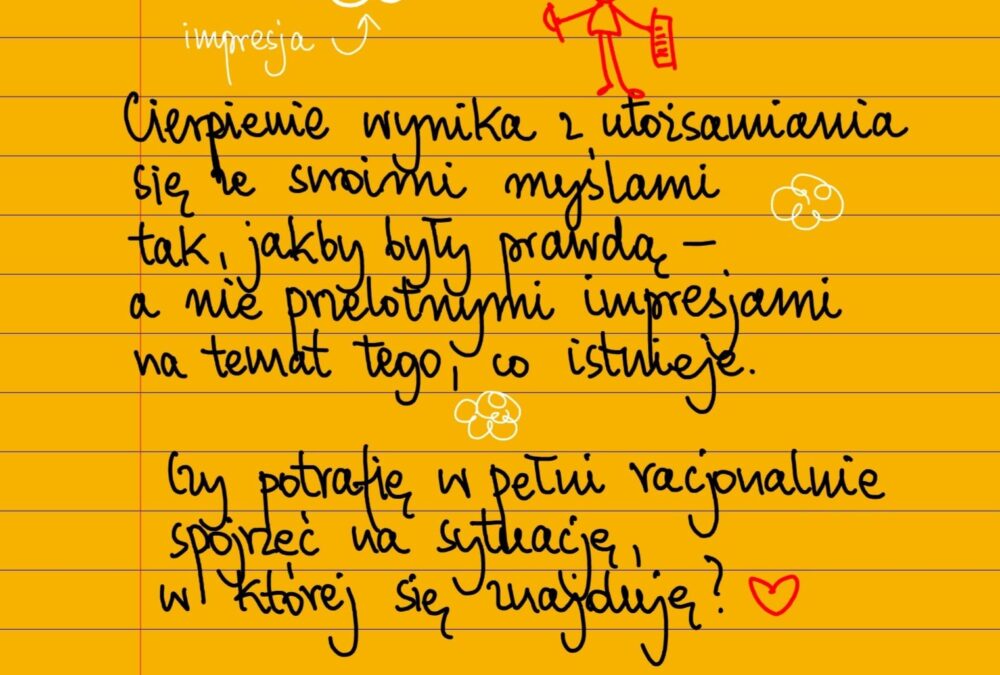 impresja
Cierpienie wynika z utożsamiania
się ze swoimi myślami
tak, jakby były prawdą –
a nie przelotnymi impresjami
na temat tego, co istnieje.
Czy potrafię w pełni racjonalnie
spojrzeć na sytuację,
w której się znajduję?